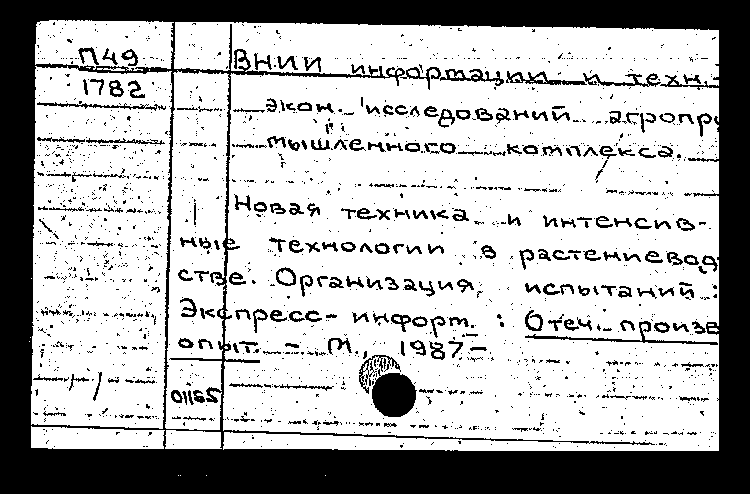 П49
1782
ВНИИ информации и техн.-
экон. исследований агропро
мышленного комплекса.
Новая техника и интенсив-
ные технологии в растениевод
стве. Организация испытаний :
Экспресс-информ. : Отеч. произв
опыт. - М., 1987-
01165